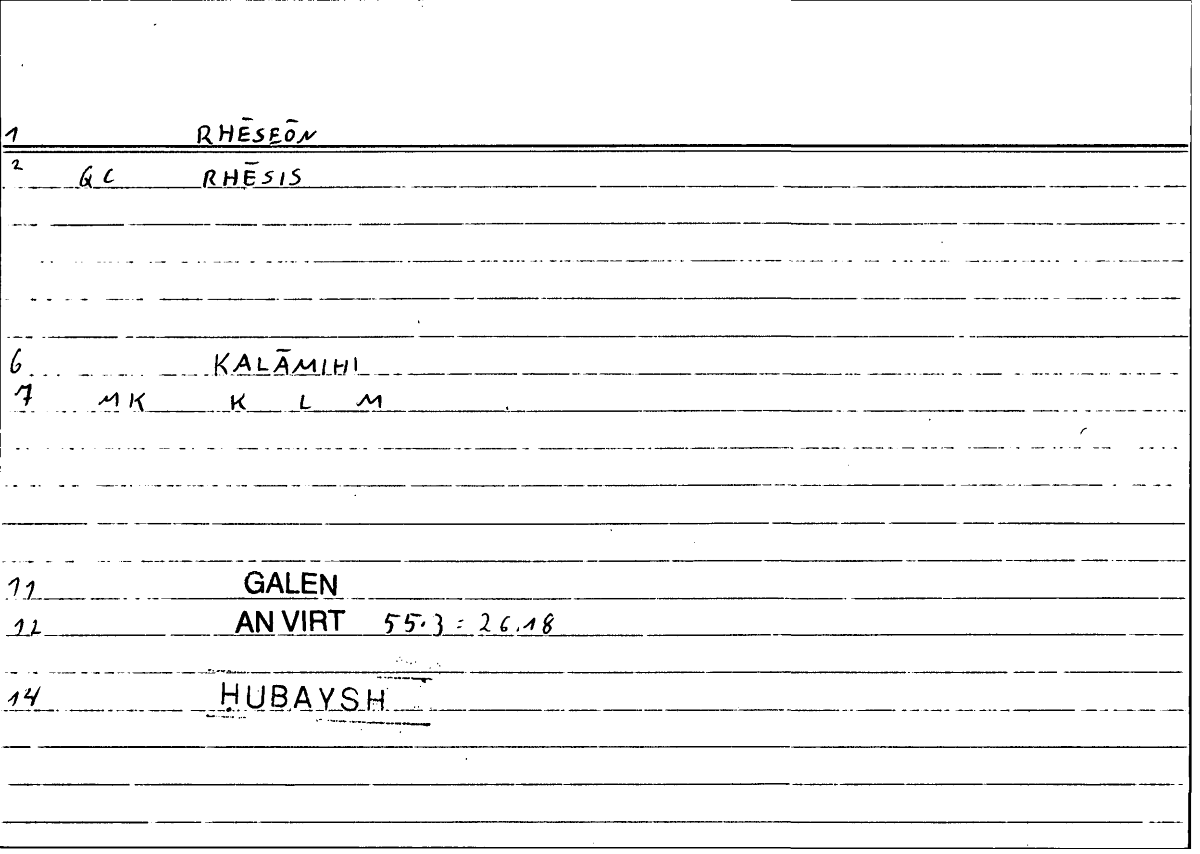 1 RHĒSEŌN
2 GC RHĒSIS
6 KALĀMIHI
7 MK K L M
11 GALEN
12 AN VIRT 55.3 = 26.18
14 ḤUBAYSH